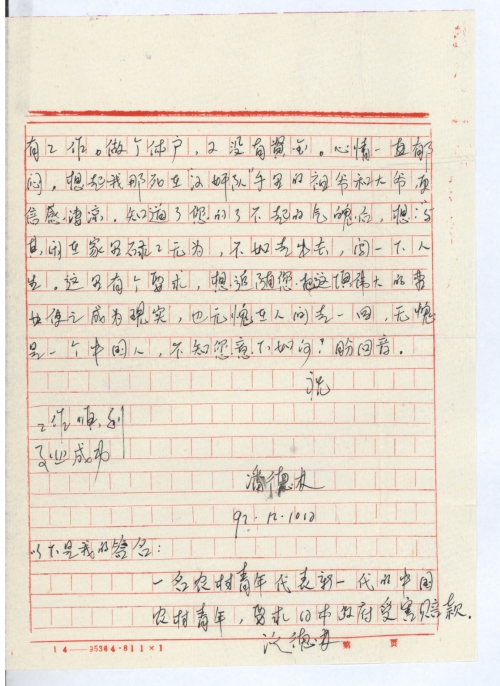 有工作。做个体户,又没有资金。心情一直郁
闷。想起我那死在"汉奸队"手里的祖爷和大爷,更
倍感凄凉。知道了您的了不起的气魄后,想与
其闲在家里碌碌无为,不如走出去,闯一下人
生。这里有个要求,想追随您,把这伟大的事
业使之成为现实,也无愧在人间走一回,无愧
是一个中国人,不知您意下如何?盼回音。
祝
工作顺利
事业成功
潘德
92.12.10日
以下是我的签名:
一名农村青年代表新一代的中国
农村青年,要求日本政府受害赔款。
德
14—95364-811×1 第 页